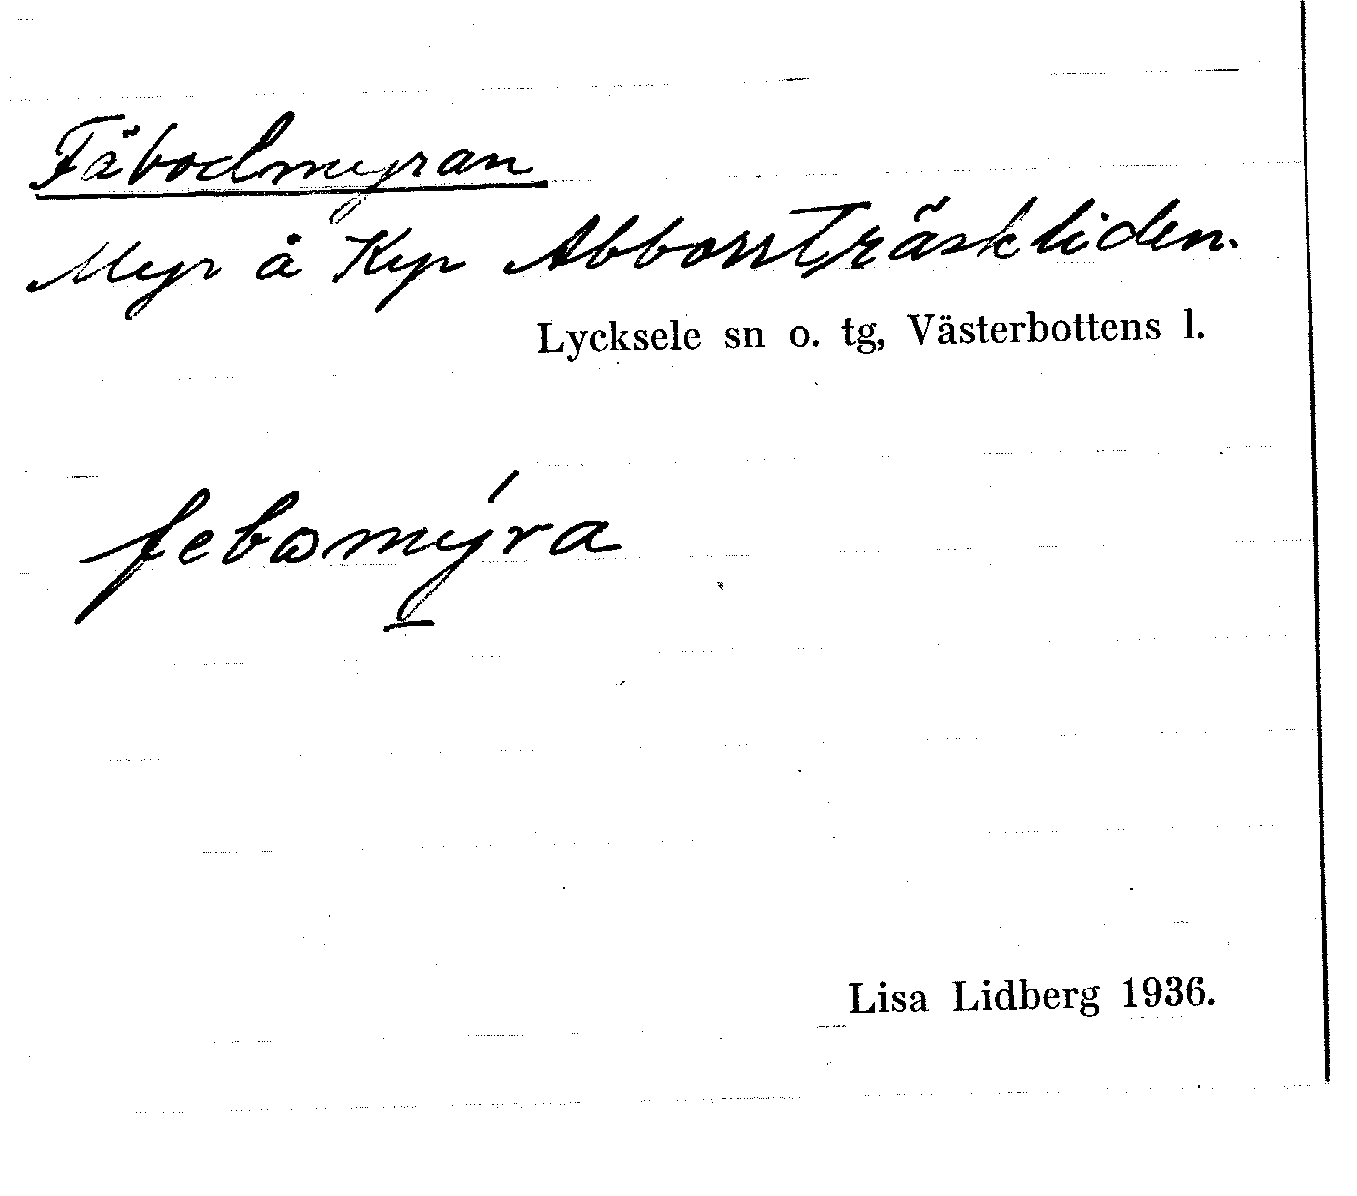 Fäbodmyran
Myr å Kyr Abborrträskliden.
Lycksele sn o. tg, Västerbottens l.
febωmýra
Lisa Lidberg 1936.